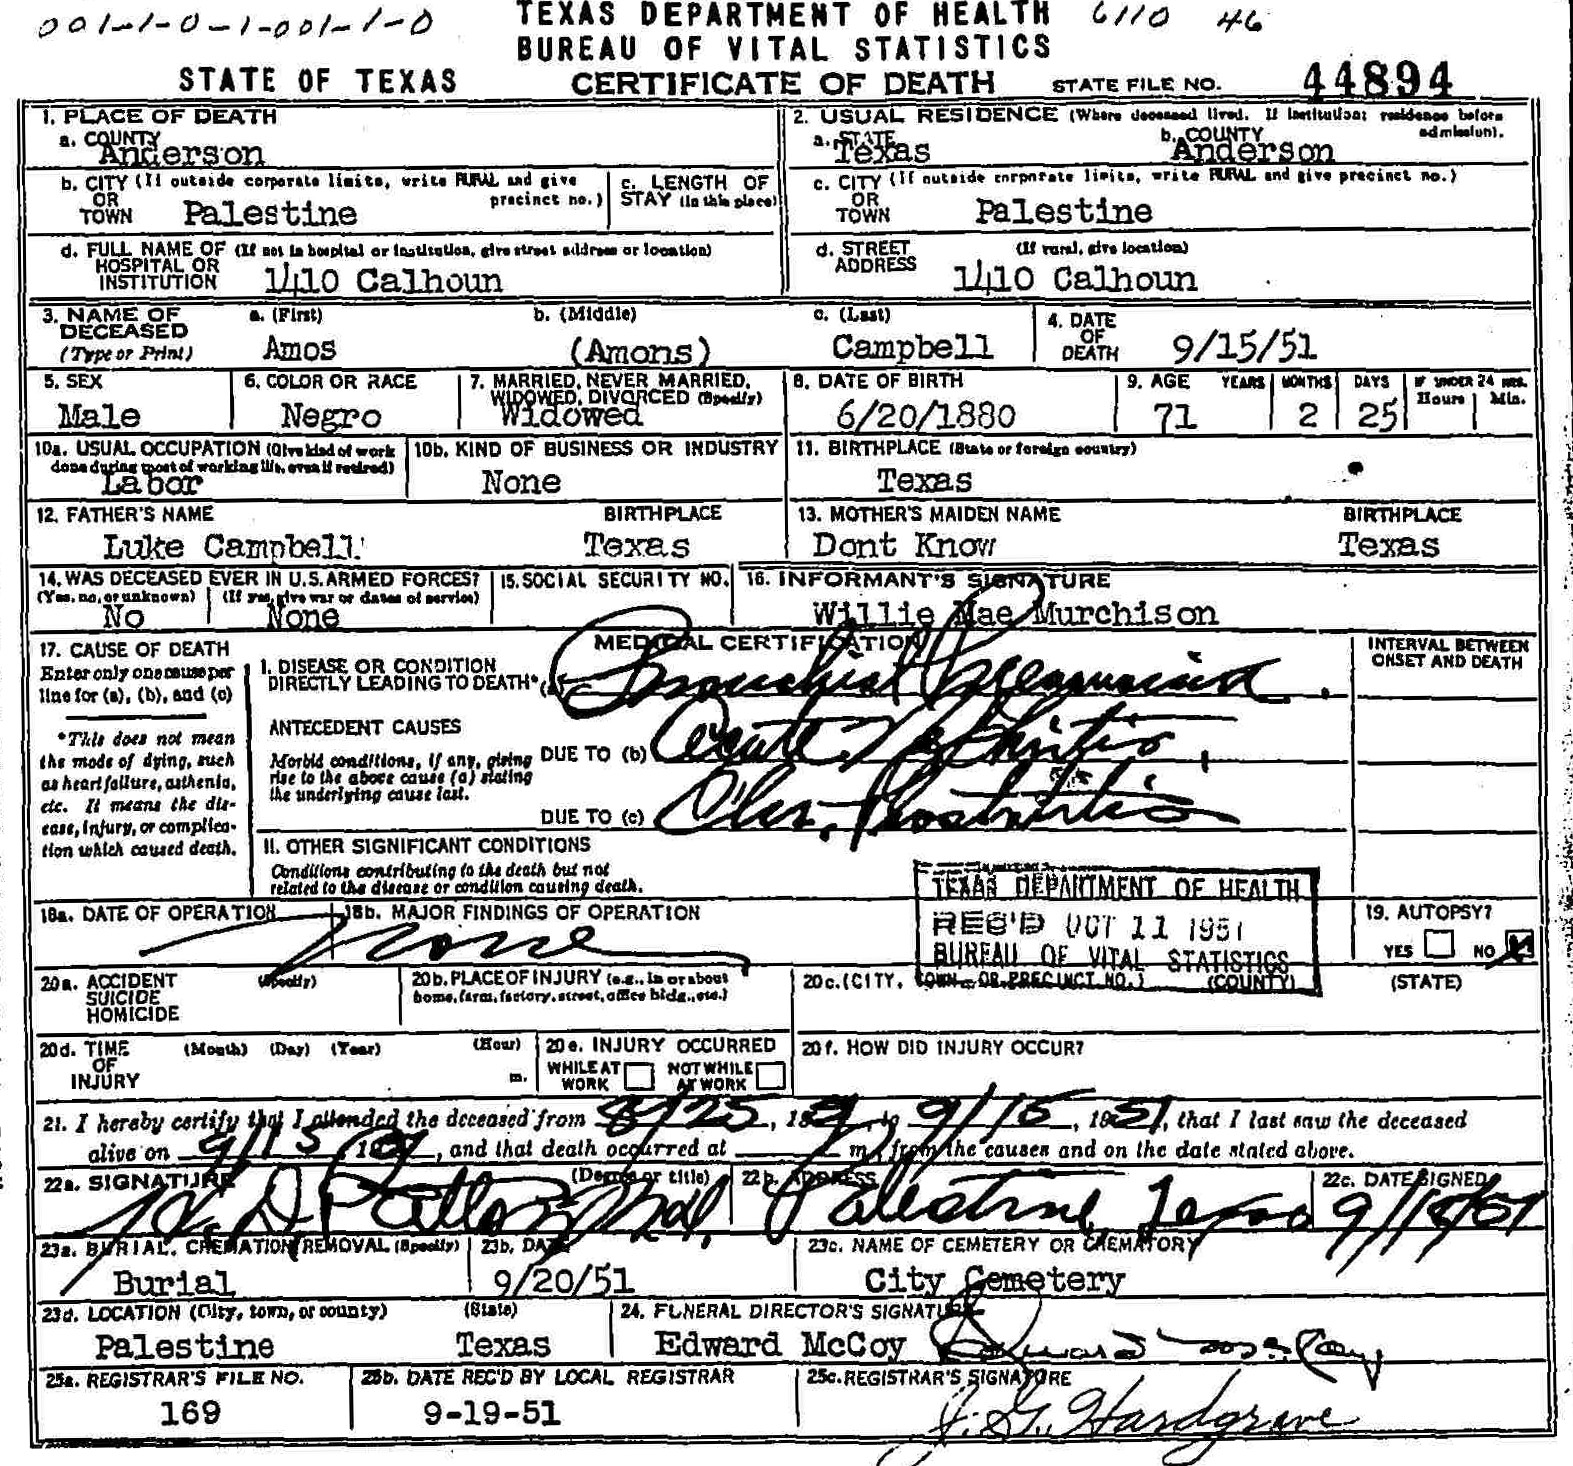 001-1-0-1-001-1-0
TEXAS DEPARTMENT OF HEALTH 6110 46
BUREAU OF VITAL STATISTICS
STATE OF TEXAS CERTIFICATE OF DEATH STATE FILE NO. 44894
1. PLACE OF DEATH
a. COUNTY
Anderson
2. USUAL RESIDENCE (Where deceased lived. If institution: residence before admission).
a. STATE
Texas
b. COUNTY
Anderson
b. CITY (If outside corporate limits, write RURAL and give precinct no.)
OR
TOWN Palestine
c. LENGTH OF
STAY (in this place)
c. CITY (If outside corporate limits, write RURAL and give precinct no.)
OR
TOWN Palestine
d. FULL NAME OF (If not in hospital or institution, give street address or location)
HOSPITAL OR
INSTITUTION 1410 Calhoun
d. STREET (If rural, give location)
ADDRESS 1410 Calhoun
3. NAME OF DECEASED
(Type or Print)
a. (First)
Amos
b. (Middle)
(Amons)
c. (Last)
Campbell
4. DATE
OF
DEATH 9/15/51
5. SEX
Male
6. COLOR OR RACE
Negro
7. MARRIED, NEVER MARRIED,
WIDOWED, DIVORCED (Specify)
Widowed
8. DATE OF BIRTH
6/20/1880
9. AGE YEARS MONTHS DAYS IF UNDER 24 HRS.
Hours Min.
71 2 25
10a. USUAL OCCUPATION (Give kind of work
done during most of working life, even if retired)
Labor
10b. KIND OF BUSINESS OR INDUSTRY
None
11. BIRTHPLACE (State or foreign country)
Texas
12. FATHER'S NAME BIRTHPLACE
Luke Campbell Texas
13. MOTHER'S MAIDEN NAME BIRTHPLACE
Dont Know Texas
14. WAS DECEASED EVER IN U.S. ARMED FORCES?
(Yes, no, or unknown) (If yes, give war or dates of service)
No None
15. SOCIAL SECURITY NO.
16. INFORMANT'S SIGNATURE
Willie Mae Murchison
17. CAUSE OF DEATH
Enter only one cause per
line for (a), (b), and (c)
*This does not mean
the mode of dying, such
as heart failure, asthenia,
etc. It means the dis-
ease, injury, or complica-
tion which caused death.
MEDICAL CERTIFICATION
INTERVAL BETWEEN
ONSET AND DEATH
I. DISEASE OR CONDITION
DIRECTLY LEADING TO DEATH* (a) Bronchial Pneumonia
ANTECEDENT CAUSES
Morbid conditions, if any, giving
rise to the above cause (a) stating
the underlying cause last.
DUE TO (b) Acute Nephritis
DUE TO (c) Chr. Prostatitis
II. OTHER SIGNIFICANT CONDITIONS
Conditions contributing to the death but not
related to the disease or condition causing death.
TEXAS DEPARTMENT OF HEALTH
REC'D OCT 11 1951
BUREAU OF VITAL STATISTICS
18a. DATE OF OPERATION
18b. MAJOR FINDINGS OF OPERATION
None
19. AUTOPSY?
YES NO X
20a. ACCIDENT (Specify)
SUICIDE
HOMICIDE
20b. PLACE OF INJURY (e.g., in or about
home, farm, factory, street, office bldg., etc.)
20c. (CITY, TOWN, OR PRECINCT NO.) (COUNTY) (STATE)
20d. TIME (Month) (Day) (Year) (Hour)
OF
INJURY m.
20e. INJURY OCCURRED
WHILE AT WORK NOT WHILE AT WORK
20f. HOW DID INJURY OCCUR?
21. I hereby certify that I attended the deceased from 8/25, 1951, to 9/15, 1951, that I last saw the deceased
alive on 9/15, 1951, and that death occurred at m., from the causes and on the date stated above.
22a. SIGNATURE (Degree or title)
22b. ADDRESS
Palestine, Texas
22c. DATE SIGNED
9/18/51
23a. BURIAL, CREMATION, REMOVAL (Specify)
Burial
23b. DATE
9/20/51
23c. NAME OF CEMETERY OR CREMATORY
City Cemetery
23d. LOCATION (City, town, or county) (State)
Palestine Texas
24. FUNERAL DIRECTOR'S SIGNATURE
Edward McCoy Edward McCoy
25a. REGISTRAR'S FILE NO.
169
25b. DATE REC'D BY LOCAL REGISTRAR
9-19-51
25c. REGISTRAR'S SIGNATURE
J. G. Hardgrave